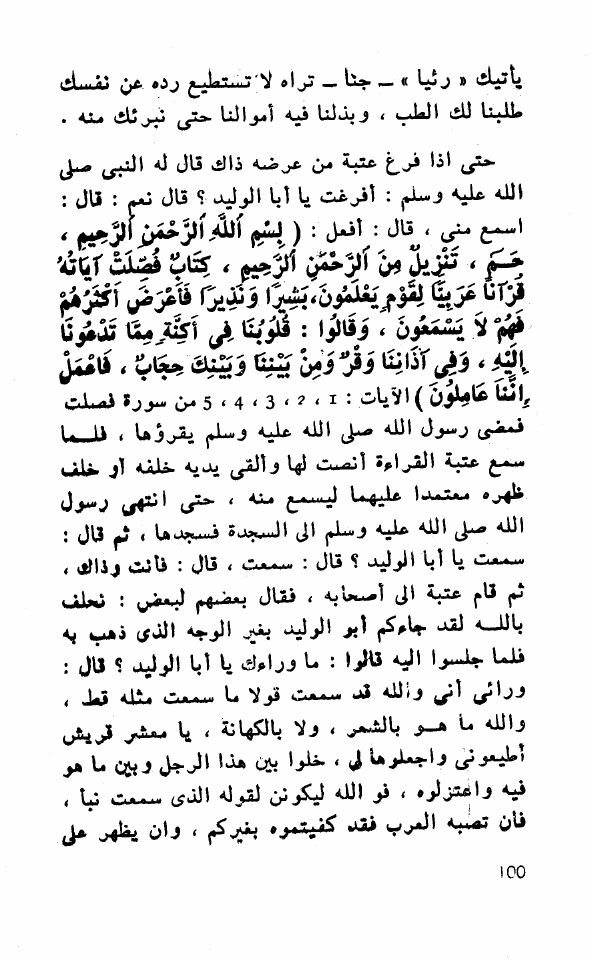 يأتيك « رئيا » ــ جنا ــ تراه لا تستطيع رده عن نفسك
طلبنا لك الطب ، وبذلنا فيه أموالنا حتى نبرئك منه .
حتى اذا فرغ عتبة من عرضه ذاك قال له النبى صلى
الله عليه وسلم : أفرغت يا أبا الوليد ؟ قال نعم : قال :
اسمع منى ، قال : أفعل : ( بِسْمِ اللَّهِ الرَّحْمَنِ الرَّحِيمِ ،
حَــمَ ، تَنْزِيلٌ مِنَ الرَّحْمَنِ الرَّحِيمِ ، كِتَابٌ فُصِّلَتْ آيَاتُهُ
قُرْآنًا عَرَبِيًّا لِقَوْمٍ يَعْلَمُونَ، بَشِيرًا وَنَذِيرًا فَأَعْرَضَ أَكْثَرُهُمْ
فَهُمْ لَا يَسْمَعُونَ ، وَقَالُوا : قُلُوبُنَا فِي أَكِنَّةٍ مِمَّا تَدْعُونَا
إِلَيْهِ ، وَفِي آذَانِنَا وَقْرٌ وَمِنْ بَيْنِنَا وَبَيْنِكَ حِجَابٌ ، فَاعْمَلْ
إِنَّنَا عَامِلُونَ ) الآيات : 1 ، 2 ، 3 ، 4 ، 5 من سورة فصلت
فمضى رسول الله صلى الله عليه وسلم يقرؤها ، فلــما
سمع عتبة القراءة أنصت لها وألقى يديه خلفه أو خلف
ظهره معتمدا عليهما ليسمع منه ، حتى انتهى رسول
الله صلى الله عليه وسلم الى السجدة فسجدها ، ثم قال :
سمعت يا أبا الوليد ؟ قال : سمعت ، قال : فأنت وذاك ،
ثم قام عتبة الى أصحابه ، فقال بعضهم لبعض : نحلف
باللــه لقد جاءكم أبو الوليد بغير الوجه الذى ذهب به
فلما جلسوا اليه قالوا : ما وراءك يا أبا الوليد ؟ قال :
ورائي أنى والله قد سمعت قولا ما سمعت مثله قط ،
والله ما هــو بالشعر ، ولا بالكهانة ، يا معشر قريش
أطيعونى واجعلوها لى ، خلوا بين هذا الرجل وبين ما هو
فيه واعتزلوه ، فو الله ليكونن لقوله الذى سمعت نبأ ،
فأن تصبه العرب فقد كفيتموه بغيركم ، وان يظهر على
100